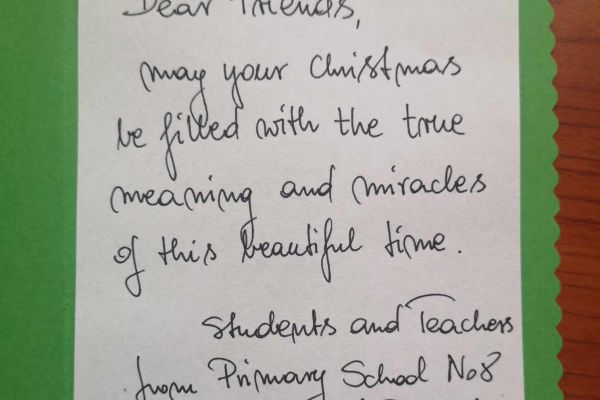 Dear Friends,
may your Christmas
be filled with the true
meaning and miracles
of this beautiful time.
Students and Teachers
from Primary School No8